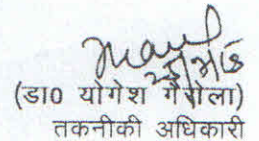 (डा0 योगेश गैरोला)
तकनीकी अधिकारी